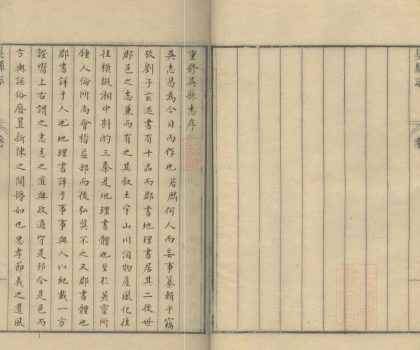 重修吳縣志序
吳志曷為今日而作也若麟何人而妄事纂輯乎竊
攷劉子玄述書有十品而郡書地理書居其二後世
郡邑之志兼而有之其叙土宇山川洎物產風化往
往模擬湘中斟酌三秦是地理書體也至於英靈所
鍾人倫所尚會稽益部而後弘獎不乏又郡書體也
郡書詳于人也地理書詳于事事與人以紀載一方
證嚮上古謂之志志之道與政通守是邦令是邑而
方輿謠俗廢置新陳之間懵如也忠孝節義之遺風